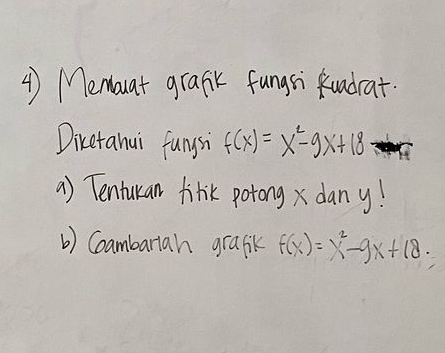 4) Membuat grafik fungsi kuadrat.
Diketahui fungsi f(x) = x²-9x+18
a) Tentukan titik potong x dan y!
b) Gambarlah grafik f(x) = x²-9x+18.